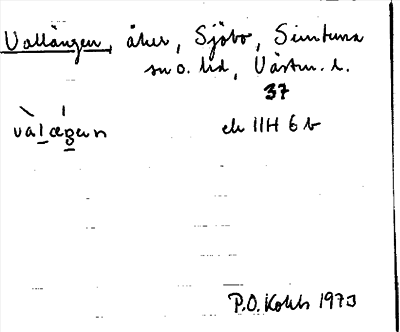 Vallängen, åker, Sjöbo, Simtuna
sn o. hd, Västm. l.
37
vàlægen ek 11H 6 b
P.O. Kohls 1973